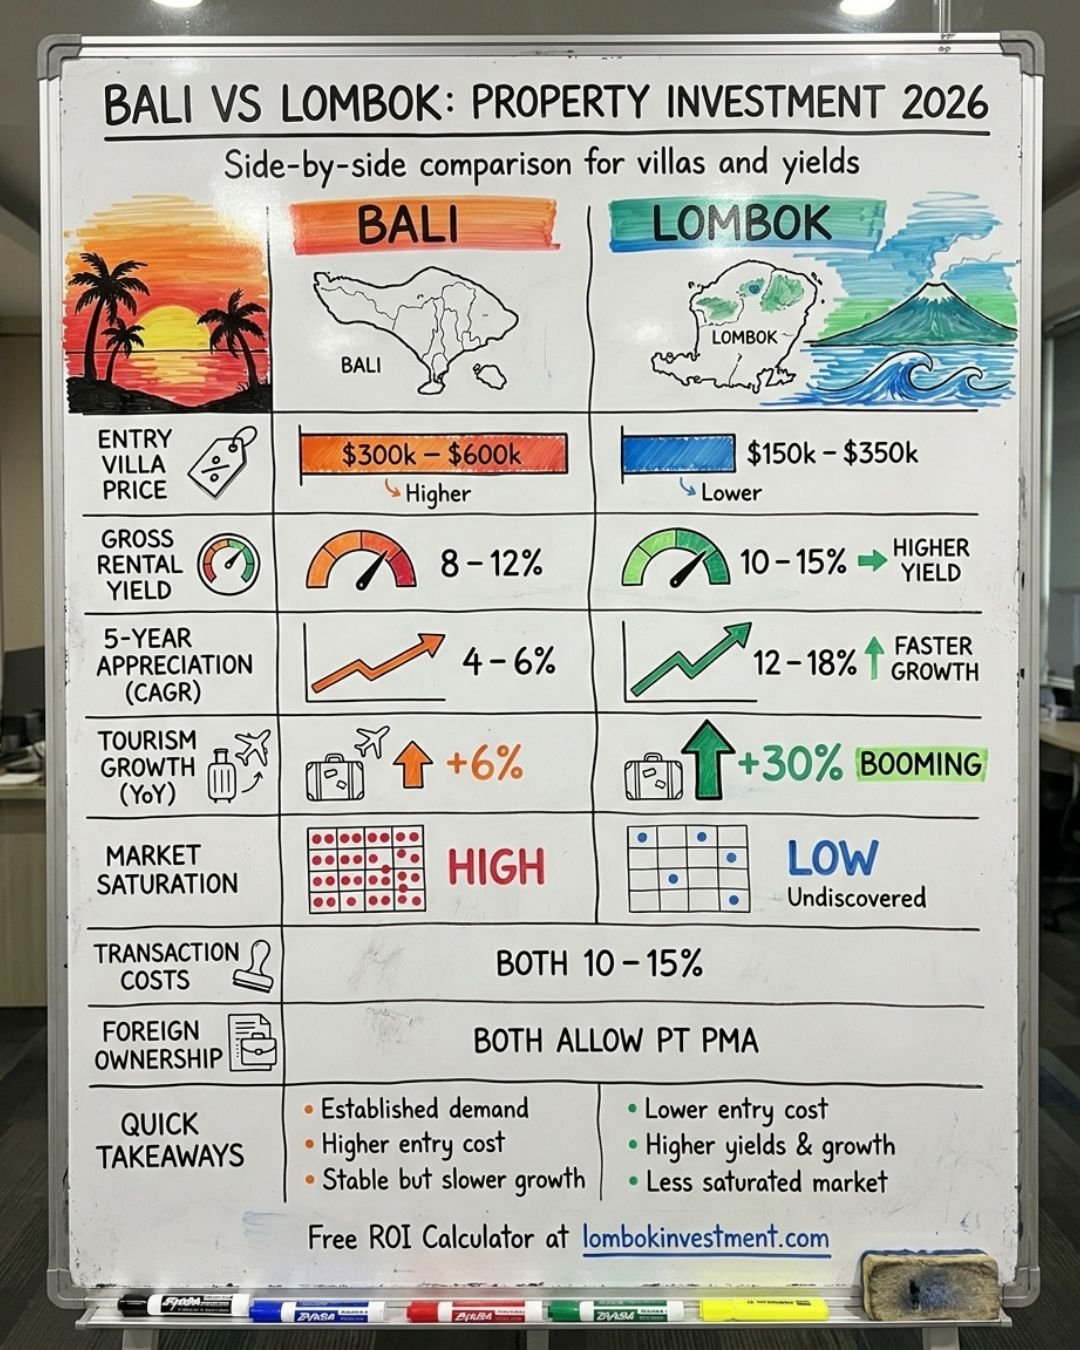 BALI VS LOMBOK: PROPERTY INVESTMENT 2026
Side-by-side comparison for villas and yields
BALI
LOMBOK
BALI
LOMBOK
ENTRY
VILLA
PRICE
%
$300k – $600k
Higher
$150k – $350k
Lower
GROSS
RENTAL
YIELD
8 – 12%
10 – 15%
HIGHER
YIELD
5-YEAR
APPRECIATION
(CAGR)
4 – 6%
12 – 18%
FASTER
GROWTH
TOURISM
GROWTH
(YoY)
+6%
+30%
BOOMING
MARKET
SATURATION
HIGH
LOW
Undiscovered
TRANSACTION
COSTS
BOTH 10 – 15%
FOREIGN
OWNERSHIP
BOTH ALLOW PT PMA
QUICK
TAKEAWAYS
• Established demand
• Higher entry cost
• Stable but slower growth
• Lower entry cost
• Higher yields & growth
• Less saturated market
Free ROI Calculator at lombokinvestment.com